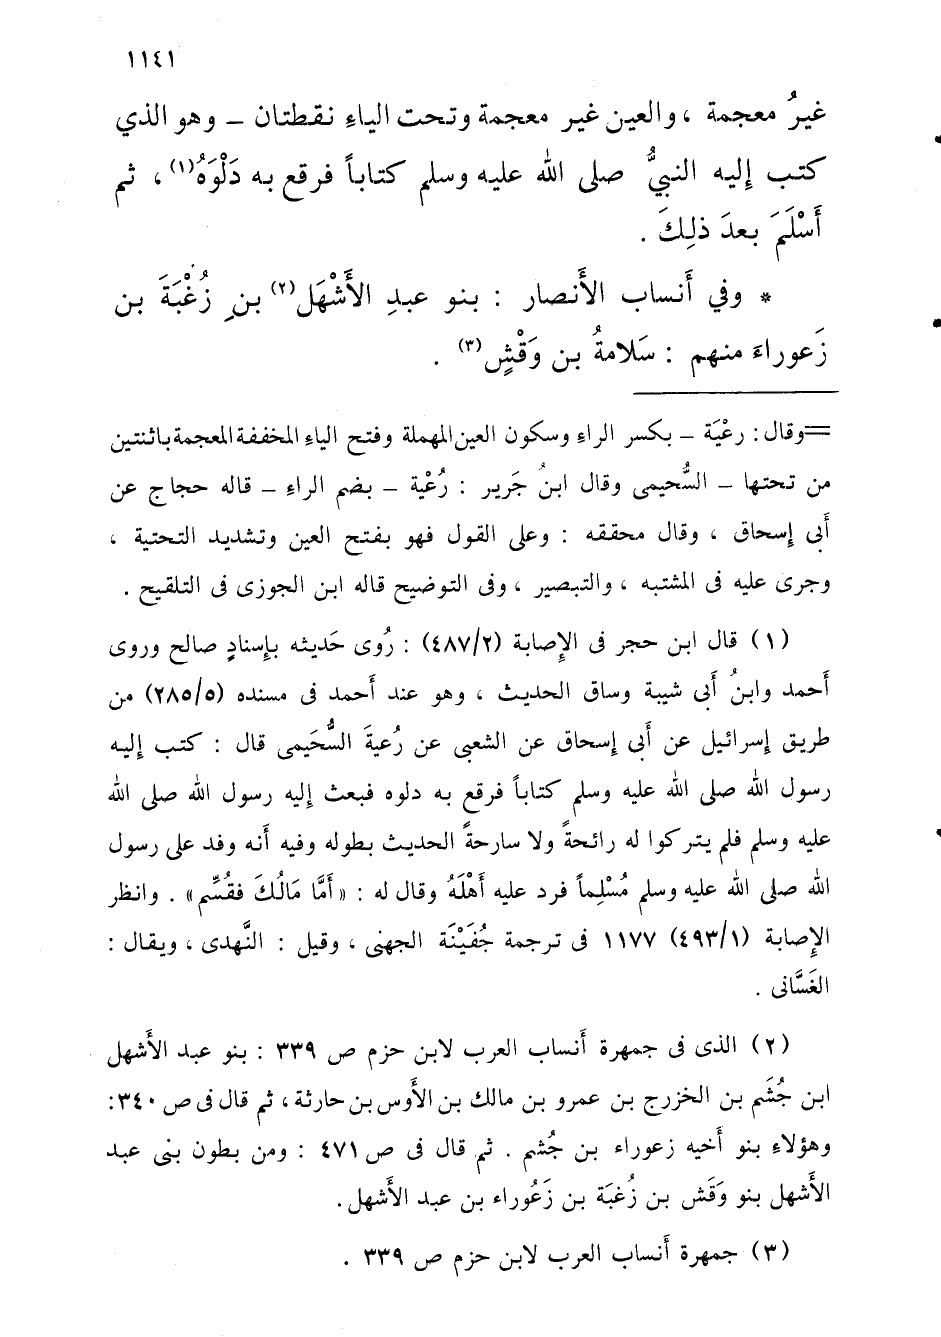 ١١٤١
غيرُ معجمة ، والعين غير معجمة وتحت الياء نقطتان – وهو الذي
كتب إليه النبيُّ صلى الله عليه وسلم كتاباً فرقع به دَلْوَهُ(١) ، ثم
أَسْلَمَ بعدَ ذلِكَ .
* وفي أَنساب الأَنصار : بنو عبدِ الأَشْهَل(٢) بنِ زُغْبَةَ بن
زَعوراءَ منهم : سَلامةُ بن وَقْشٍ(٣) .
=وقال : رِعْيَة – بكسر الراءِ وسكون العين المهملة وفتح الياءِ المخففة المعجمة باثنتين
من تحتها – السُّحيمى وقال ابنُ جَرير : رُعْية – بضم الراءِ – قاله حجاج عن
أَبى إِسحاق ، وقال محققه : وعلى القول فهو بفتح العين وتشديد التحتية ،
وجرى عليه فى المشتبه ، والتبصير ، وفى التوضيح قاله ابن الجوزى فى التلقيح .
(١) قال ابن حجر فى الإِصابة (٤٨٧/٢) : رُوى حَديثه بإِسنادٍ صالح وروى
أَحمد وابنُ أَبى شيبة وساق الحديث ، وهو عند أَحمد فى مسنده (٢٨٥/٥) من
طريق إِسرائيل عن أَبى إِسحاق عن الشعبى عن رُعيةَ السُّحَيمى قال : كتب إِليه
رسول الله صلى الله عليه وسلم كتاباً فرقع به دلوه فبعث إِليه رسول الله صلى الله
عليه وسلم فلم يتركوا له رائحةً ولا سارحةً الحديث بطوله وفيه أَنه وفد على رسول
الله صلى الله عليه وسلم مُسْلِماً فرد عليه أَهْلَهُ وقال له : «أَمَّا مَالُكَ فقُسِّم» . وانظر
الإِصابة (٤٩٣/١) ١١٧٧ فى ترجمة جُفَيْنَة الجهنى ، وقيل : النَّهدى ، ويقال :
الغَسَّانى .
(٢) الذى فى جمهرة أَنساب العرب لابن حزم ص ٣٣٩ : بنو عبد الأَشهل
ابن جُشَم بن الخزرج بن عمرو بن مالك بن الأَوس بن حارثة ، ثم قال فى ص ٣٤٠ :
وهؤلاءِ بنو أَخيه زعوراء بن جُشم . ثم قال فى ص ٤٧١ : ومن بطون بنى عبد
الأَشهل بنو وَقَش بن زُغبَة بن زَعُوراء بن عبد الأَشهل .
(٣) جمهرة أَنساب العرب لابن حزم ص ٣٣٩ .